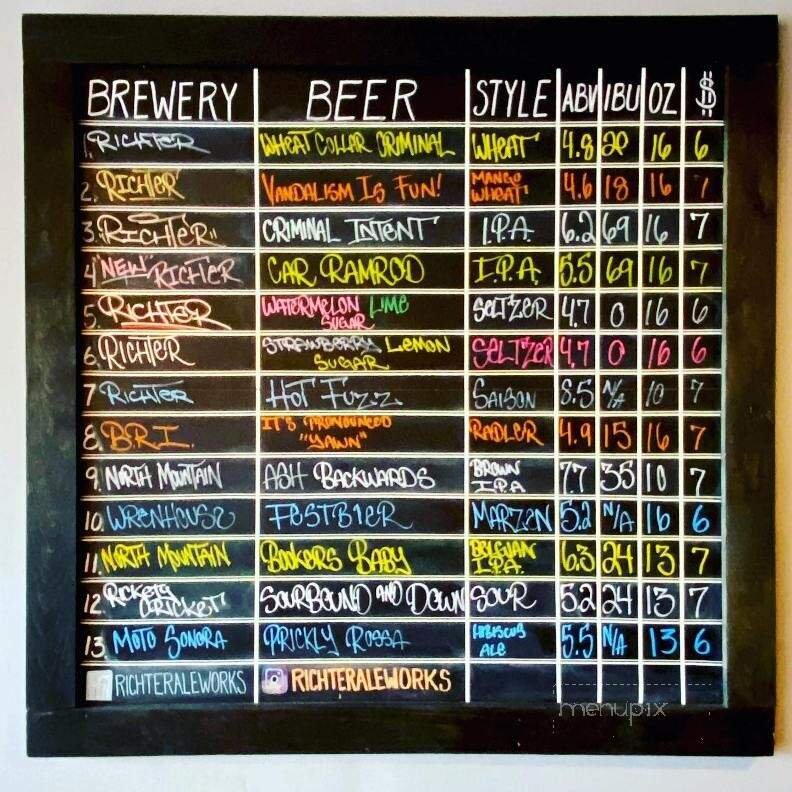 BREWERY BEER STYLE ABV IBU OZ $
1. RICHTER WHEAT COLLAR CRIMINAL WHEAT 4.8 20 16 6
2. RICHTER VANDALISM IS FUN! MANGO WHEAT 4.6 18 16 7
3. "RICHTER" CRIMINAL INTENT I.P.A. 6.2 69 16 7
4 "NEW" RICHTER CAR RAMROD I.P.A. 5.5 69 16 7
5. RICHTER WATERMELON LIME SUGAR SELTZER 4.7 0 16 6
6. RICHTER STRAWBERRY LEMON SUGAR SELTZER 4.7 0 16 6
7 RICHTER HOT FUZZ SAISON 8.5 N/A 10 7
8. B.R.I. IT'S PRONOUNCED "YAWN" RADLER 4.9 15 16 7
9. NORTH MOUNTAIN ASH BACKWARDS BROWN I.P.A 7.7 35 10 7
10. WRENHOUSE FESTBIER MARZEN 5.2 N/A 16 6
11. NORTH MOUNTAIN BOOKERS BABY BELGIAN I.P.A. 6.3 24 13 7
12 RICKETY CRICKET SOURBOUND AND DOWN SOUR 5.2 24 13 7
13. MOTO SONORA PRICKLY ROSSA HIBISCUS ALE 5.5 N/A 13 6
RICHTERALEWORKS RICHTERALEWORKS
menupix